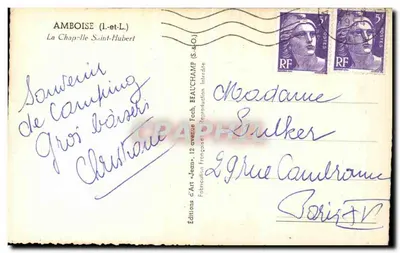 AMBOISE (I.-et-L.)
La Chapelle Saint-Hubert
Souvenir
de Camping
Gros baisers
Christiane
Editions d'Art «Jean», 12 avenue Foch, BEAUCHAMP (S.-&-O.)
Fabrication Française Reproduction Interdite
5F
RF
RF
CARTORUM
Madame
29 rue Cambronne
Paris XV